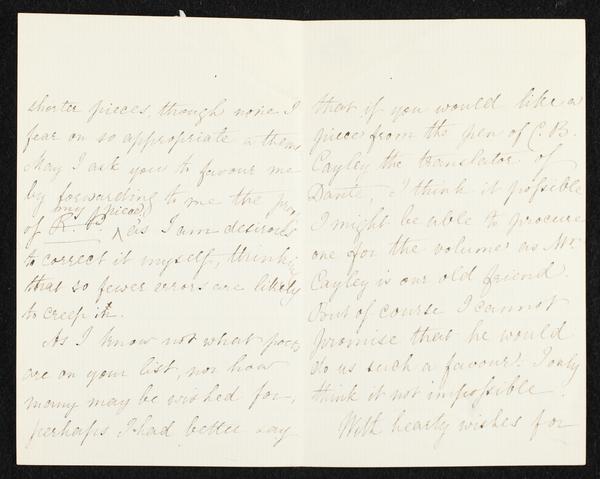 shorter pieces, though none I
fear on so appropriate a theme
May I ask you to favour me
by forwarding to me the
my (piece)
of R. P. as I am desirous
to correct it myself, thinking
that so fewer errors are likely
to creep in.
As I know not what poets
are on your list, nor how
many may be wished for,
perhaps I had better say
that if you would like a
piece from the pen of C. B.
Cayley the translator of
Dante, I think it possible
I might be able to procure
one for the volume as Mr.
Cayley is our old friend.
But of course I cannot
promise that he would
do us such a favour. I only
think it not impossible.
With hearty wishes for